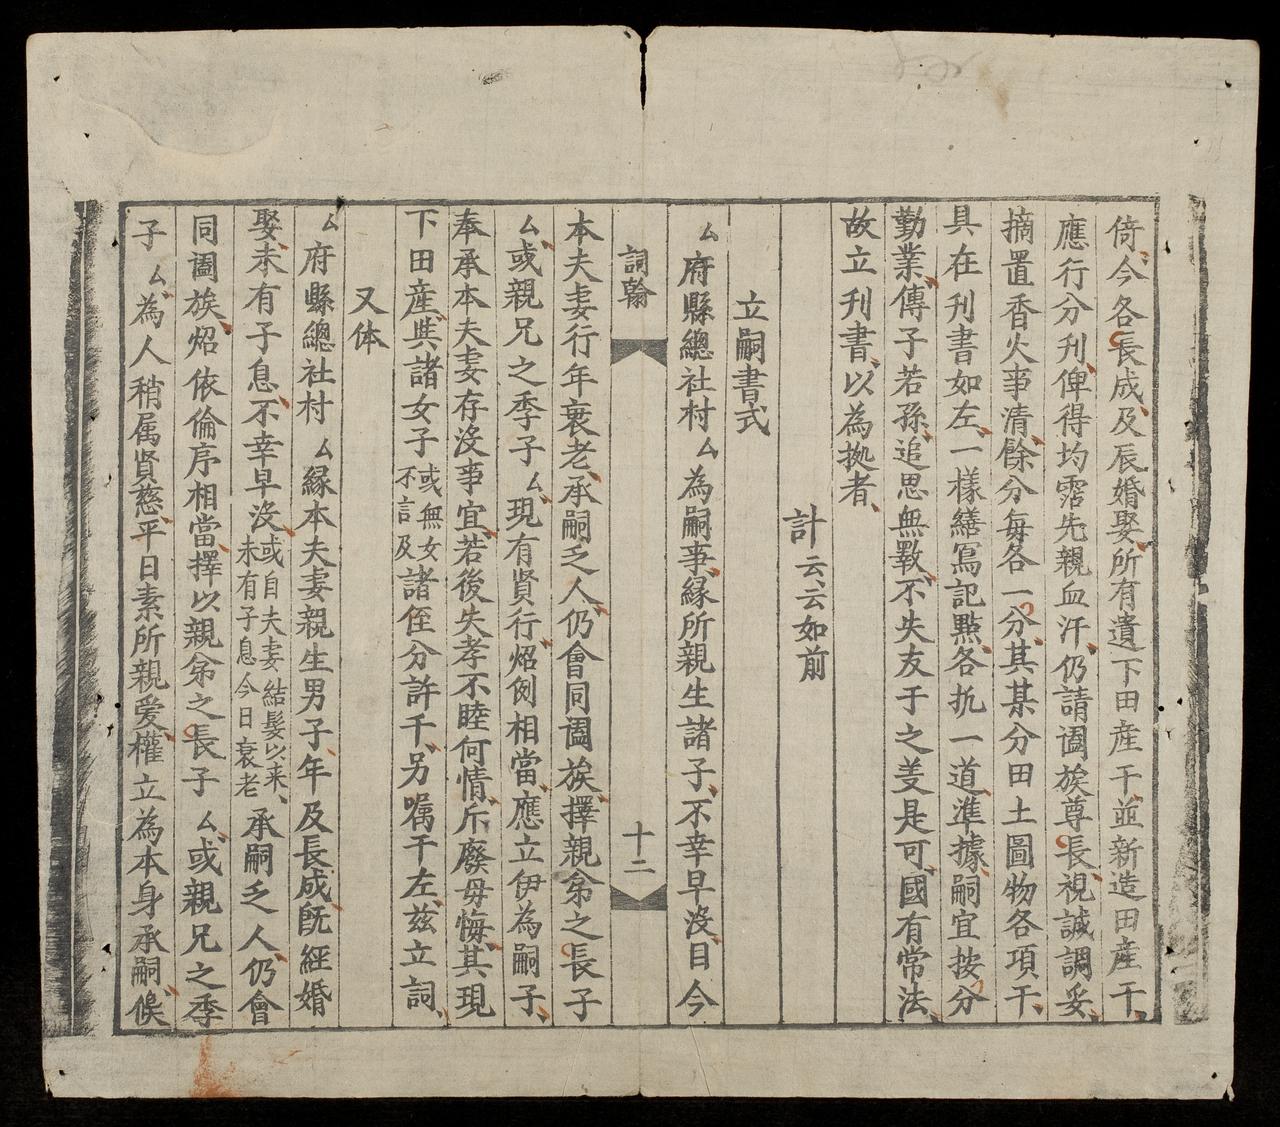 倚、今各長成、及辰婚娶、所有遺下田産干、並新造田産干、
應行分刋、俾得均霑先親血汗、仍請闔族尊長視誠調妥、
摘置香火事清、餘分每各一分、其某分田土圖物各項干、
具在刋書如左、一樣繕寫記㸃、各扤一道、準據、嗣宜按分
勤業、傳子若孫、追思無斁、不失友于之羙是可、國有常法、
故立刋書、以為拠者、
計云云如前
立嗣書式
厶府縣總社村厶為嗣事、縁所親生諸子、不幸早没、目今
詞翰 十二
本夫妻行年衰老、承嗣乏人、仍會同闔族、擇親弟之長子
厶、或親兄之季子厶、現有賢行、炤例相當、應立伊為嗣子、
奉承本夫妻存没事宜、若後失孝不睦何情、斥廢毋悔、其現
下田産、與諸女子或無女不言及諸侄分許千、另囑干左、兹立詞、
又体
厶府縣總社村厶縁本夫妻親生男子、年及長成、既經婚
娶、未有子息、不幸早没、或自夫妻結髮以来、未有子息今日衰老承嗣乏人、仍會
同闔族、炤依倫序相當、擇以親弟之長子厶、或親兄之季
子厶、為人稍属賢慈、平日素所親愛、權立為本身承嗣、俟